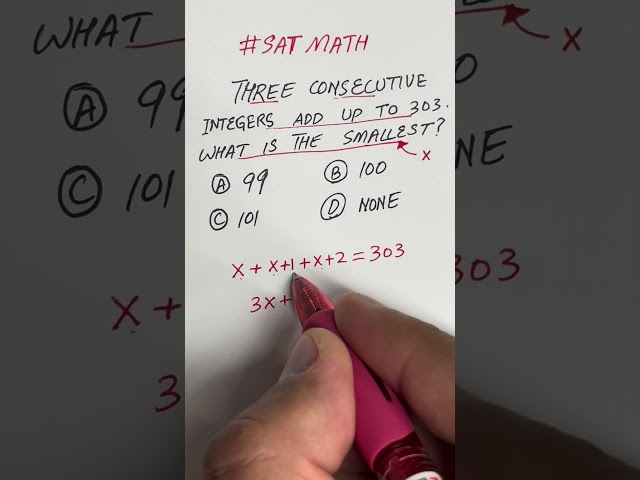 #SAT MATH
THREE CONSECUTIVE
INTEGERS ADD UP TO 303.
WHAT IS THE SMALLEST?
x
A 99
B 100
C 101
D NONE
x + x+1 + x+2 = 303
3x+